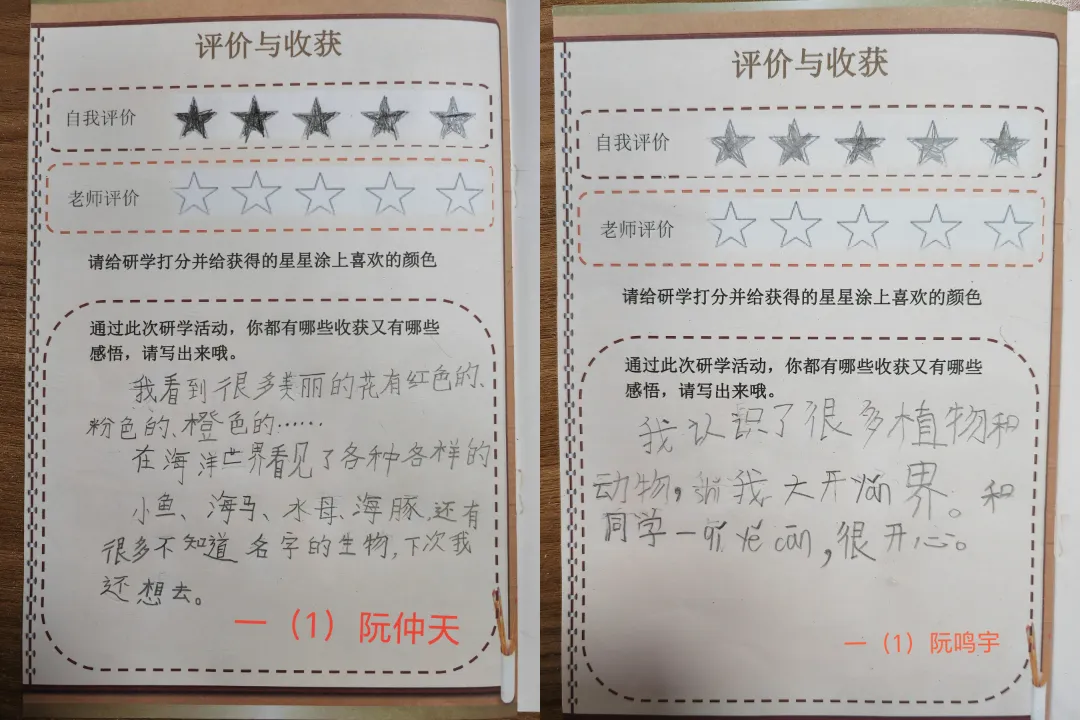 评价与收获
自我评价
老师评价
请给研学打分并给获得的星星涂上喜欢的颜色
通过此次研学活动，你都有哪些收获又有哪些
感悟，请写出来哦。
我看到很多美丽的花有红色的、
粉色的、橙色的……
在海洋世界看见了各种各样的
小鱼、海马、水母、海豚，还有
很多不知道名字的生物，下次我
还想去。
一（1）阮仲天
评价与收获
自我评价
老师评价
请给研学打分并给获得的星星涂上喜欢的颜色
通过此次研学活动，你都有哪些收获又有哪些
感悟，请写出来哦。
我认识了很多植物和
动物，我大开yǎn界。和
同学一qǐ yě cān，很开心。
一（1）阮鸣宇